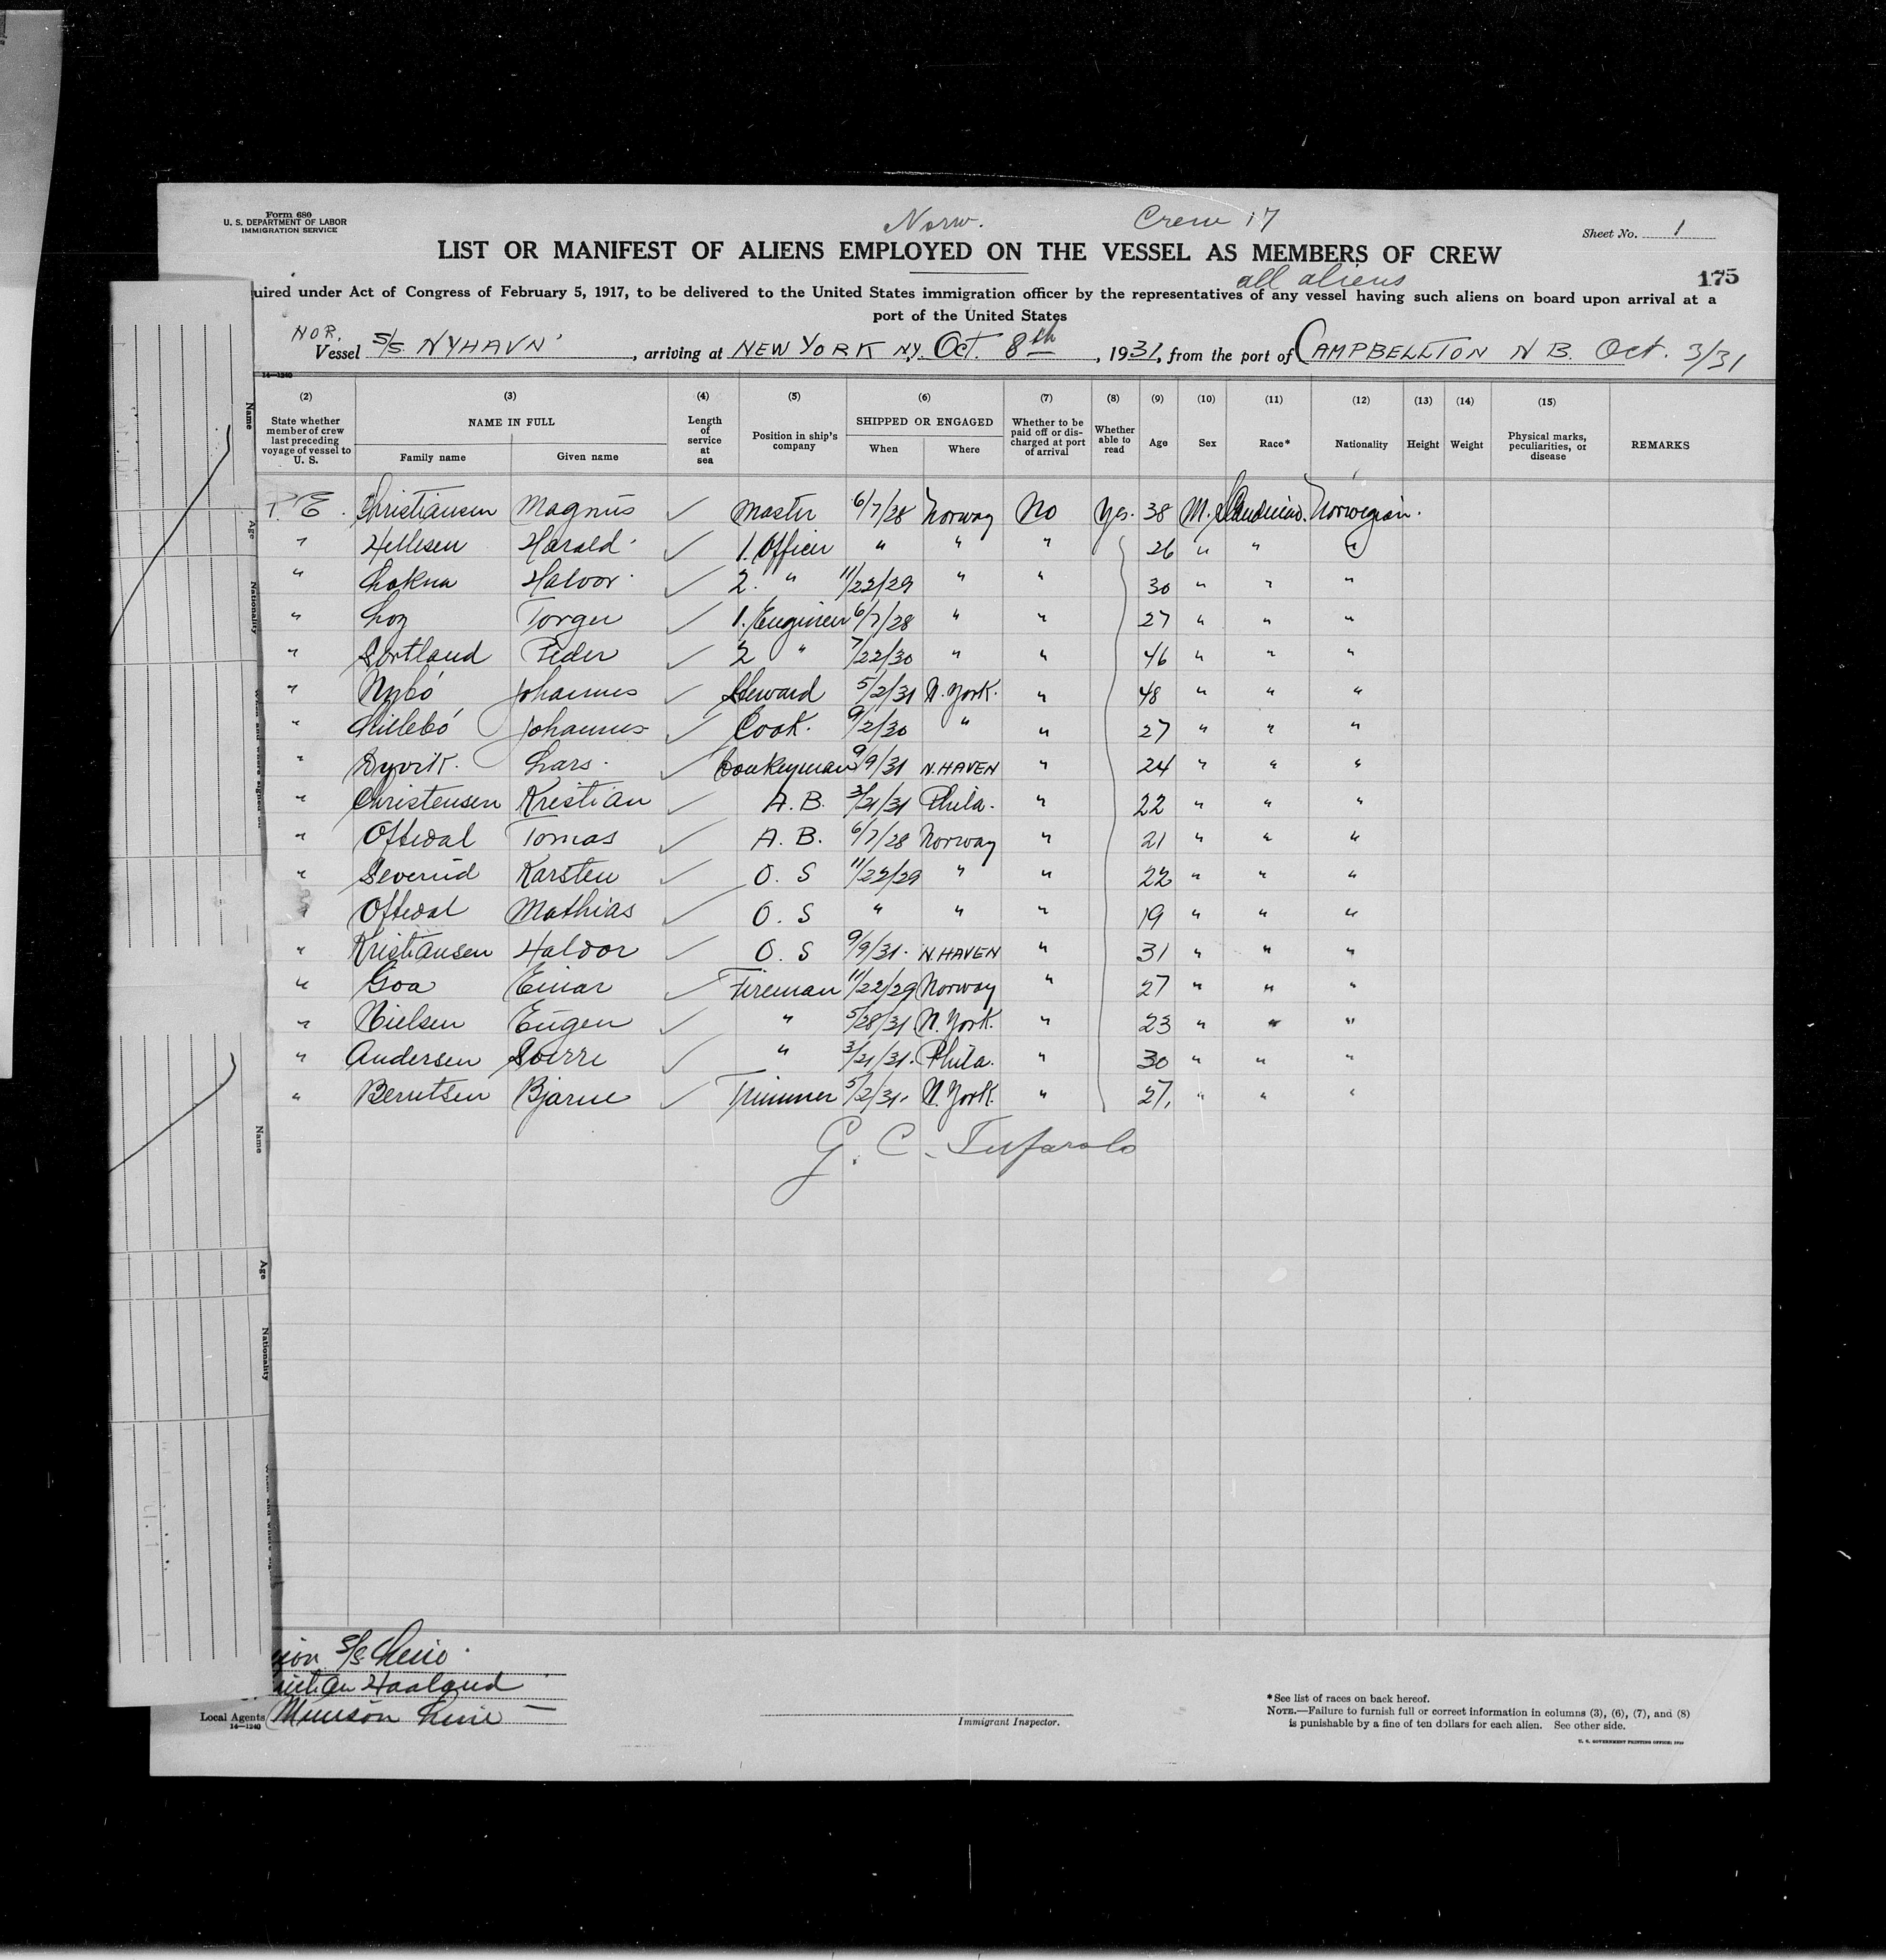 Form 680
U. S. DEPARTMENT OF LABOR
IMMIGRATION SERVICE
Norw. Crew 17
Sheet No. 1
LIST OR MANIFEST OF ALIENS EMPLOYED ON THE VESSEL AS MEMBERS OF CREW
all aliens
175
uired under Act of Congress of February 5, 1917, to be delivered to the United States immigration officer by the representatives of any vessel having such aliens on board upon arrival at a
port of the United States
NOR.
Vessel S/S. NYHAVN , arriving at NEW YORK NY. Oct. 8th , 1931, from the port of CAMPBELLTON N B. Oct. 3/31
14—1240
(2) (3) (4) (5) (6) (7) (8) (9) (10) (11) (12) (13) (14) (15)
State whether member of crew last preceding voyage of vessel to U. S.
NAME IN FULL
Family name Given name
Length of service at sea
Position in ship's company
SHIPPED OR ENGAGED
When Where
Whether to be paid off or discharged at port of arrival
Whether able to read
Age Sex Race* Nationality Height Weight
Physical marks, peculiarities, or disease
REMARKS
Christiansen Magnus ✓ Master 6/7/28 Norway No Yes. 38 M. Norwegian.
" Hellesen Harald ✓ 1. Officer " " " 26 " " "
" Halvor ✓ 2. " 11/22/29 " " 30 " " "
" ✓ 1. Engineer 6/7/28 " " 27 " " "
" Sortland Peder ✓ 2 " 7/22/30 " " 46 " " "
" Nybó Johannes ✓ Steward 5/2/31 N. York. " 48 " " "
" Johannes ✓ Cook. 9/2/30 " " 27 " " "
" Dyvik. Lars. ✓ Donkeyman 9/9/31 N. HAVEN " 24 " " "
" Christensen Kristian ✓ A. B. 3/21/31 Phila. " 22 " " "
" Oftedal Tomas ✓ A. B. 6/7/28 Norway " 21 " " "
" Severud Karsten ✓ O. S 11/22/29 " " 22 " " "
" Oftedal Mathias ✓ O. S " " " 19 " " "
" Kristiansen Haldor ✓ O. S 9/9/31. N. HAVEN " 31 " " "
" Goa Einar ✓ Fireman 11/22/29 Norway " 27 " " "
" Nielsen Eugen ✓ " 5/28/31 N. York. " 23 " " "
" Andersen Sverre ✓ " 3/21/31. Phila. " 30 " " "
" Berntsen Bjarne ✓ Trimmer 5/2/31. N. York. " 27. " " "
G. C.
Name
Age
Nationality
Name
Age
Nationality
S/S
Haaland
Local Agents Munson Line
14—1240
Immigrant Inspector.
*See list of races on back hereof.
NOTE.—Failure to furnish full or correct information in columns (3), (6), (7), and (8)
is punishable by a fine of ten dollars for each alien. See other side.